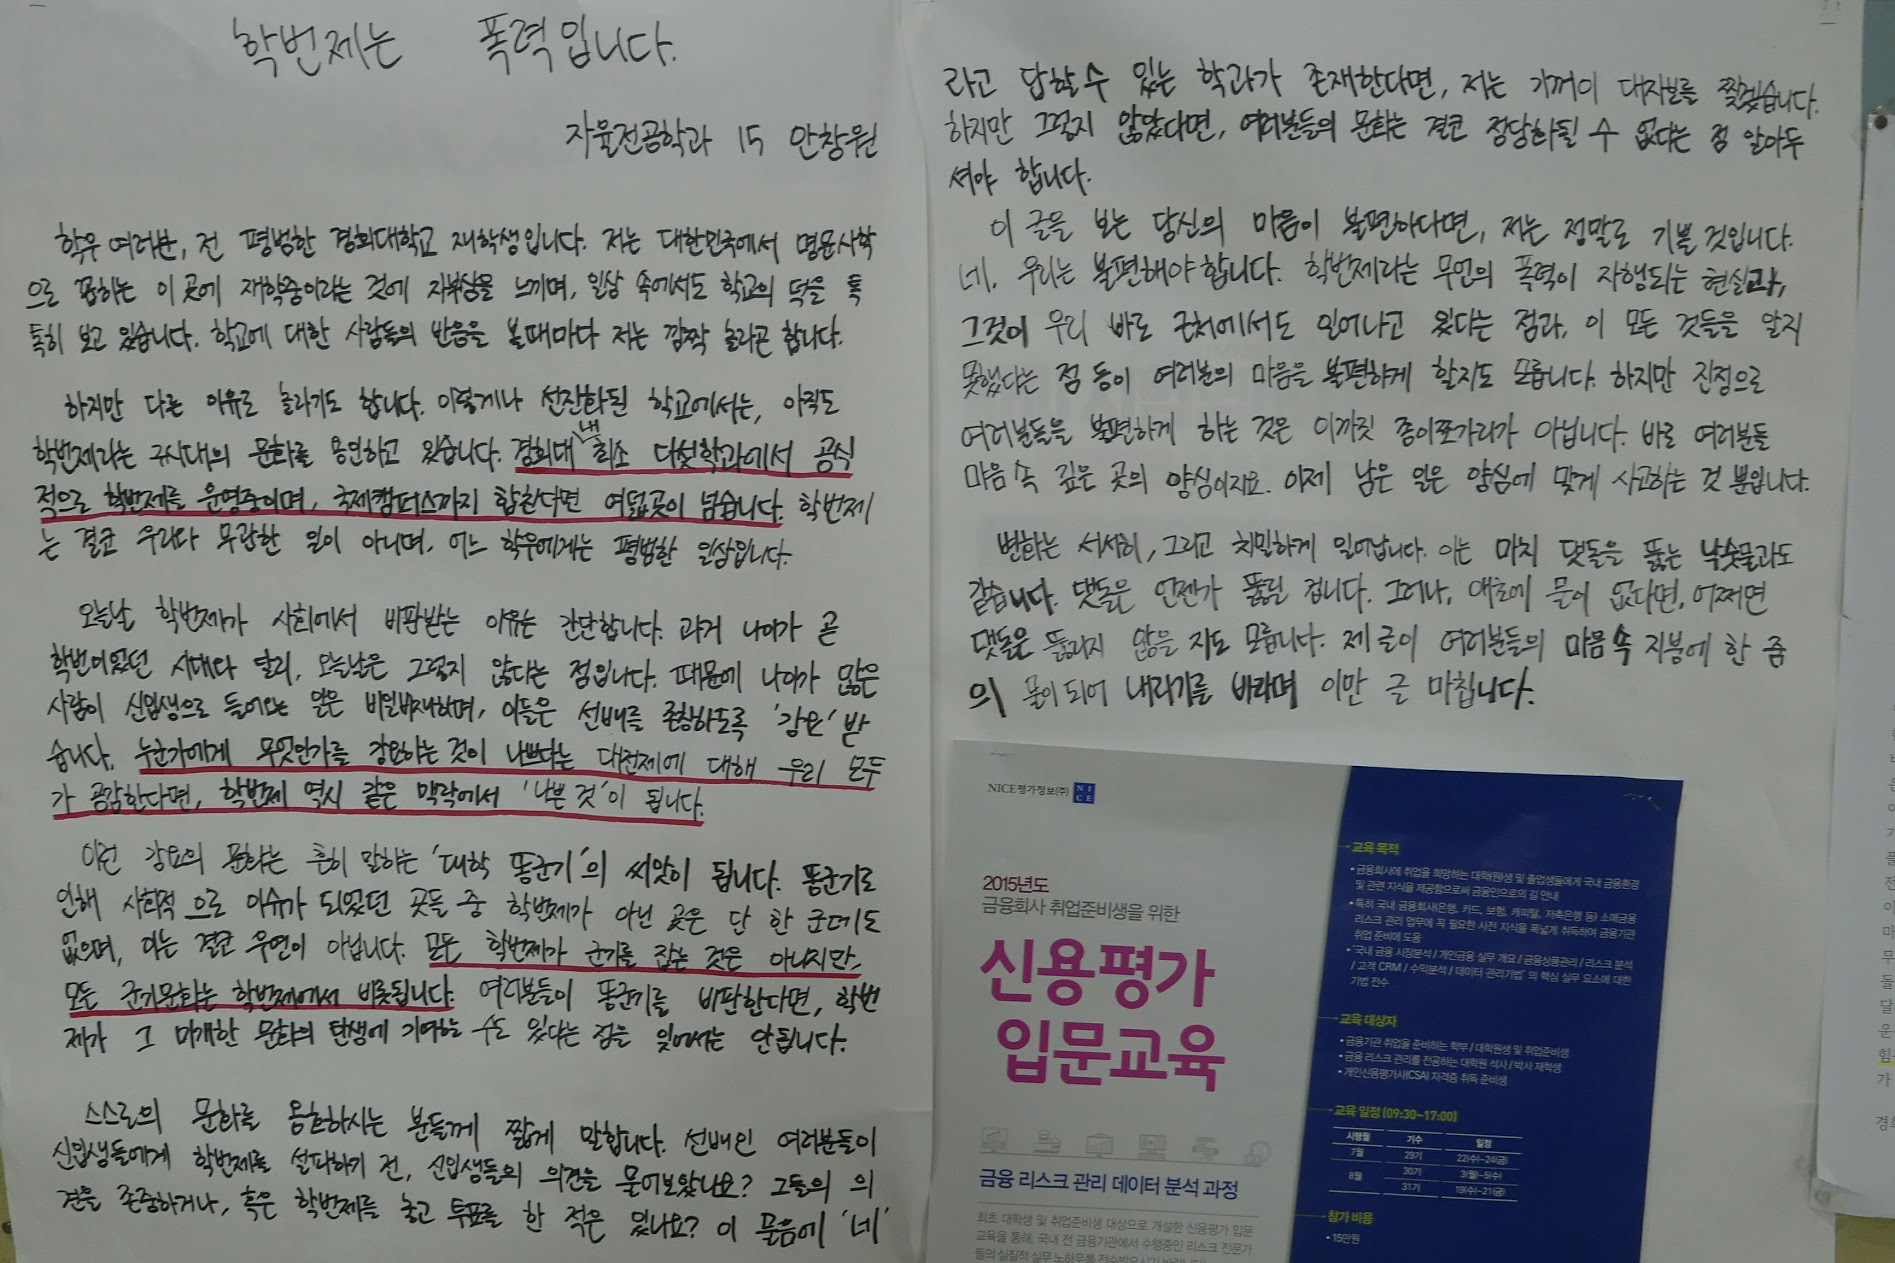 학번제는 폭력입니다.
자율전공학과 15 안창원
학우 여러분, 전 평범한 경희대학교 재학생입니다. 저는 대한민국에서 명문사학
으로 꼽히는 이 곳에 재학중이라는 것에 자부심을 느끼며, 일상 속에서도 학교의 덕을 톡
톡히 보고 있습니다. 학교에 대한 사람들의 반응을 볼때마다 저는 깜짝 놀라곤 합니다.
하지만 다른 이유로 놀라기도 합니다. 이렇게나 선진화된 학교에서는, 아직도
학번제라는 구시대의 문화를 용인하고 있습니다. 경희대 내 최소 다섯학과에서 공식
적으로 학번제를 운영중이며, 국제캠퍼스까지 합친다면 여덟곳이 넘습니다. 학번제
는 결코 우리와 무관한 일이 아니며, 어느 학우에게는 평범한 일상입니다.
오늘날 학번제가 사회에서 비판받는 이유는 간단합니다. 과거 나이가 곧
학번이었던 시대와 달리, 오늘날은 그렇지 않다는 점입니다. 때문에 나이가 많은
사람이 신입생으로 들어오는 일은 비일비재하며, 이들은 선배를 존칭하도록 '강요'받
습니다. 누군가에게 무엇인가를 강요하는 것이 나쁘다는 대전제에 대해 우리 모두
가 공감한다면, 학번제 역시 같은 맥락에서 '나쁜 것'이 됩니다.
이런 강요의 문화는 흔히 말하는 '대학 똥군기'의 씨앗이 됩니다. 똥군기로
인해 사회적으로 이슈가 되었던 곳들 중 학번제가 아닌 곳은 단 한 군데도
없으며, 이는 결코 우연이 아닙니다. 모든 학번제가 군기를 잡는 것은 아니지만,
모든 군기문화는 학번제에서 비롯됩니다. 여러분들이 똥군기를 비판한다면, 학번
제가 그 미개한 문화의 탄생에 기여하는 수도 있다는 점을 잊어서는 안됩니다.
스스로의 문화를 옹호하시는 분들께 짧게 말합니다. 선배인 여러분들이
신입생들에게 학번제를 설파하기 전, 신입생들의 의견을 물어보았나요? 그들의 의
견을 존중하거나, 혹은 학번제를 놓고 투표를 한 적은 있나요? 이 물음에 '네'
라고 답할 수 있는 학과가 존재한다면, 저는 기꺼이 대자보를 찢겠습니다.
하지만 그렇지 않았다면, 여러분들의 문화는 결코 정당화될 수 없다는 점 알아두
셔야 합니다.
이 글을 보는 당신의 마음이 불편하다면, 저는 정말로 기쁠 것입니다.
네, 우리는 불편해야합니다. 학번제라는 무언의 폭력이 자행되는 현실과,
그것이 우리 바로 근처에서도 일어나고 있다는 점과, 이 모든 것들을 알지
못했다는 점 등이 여러분의 마음을 불편하게 할지도 모릅니다. 하지만 진정으로
여러분들을 불편하게 하는 것은 이까짓 종이쪼가리가 아닙니다. 바로 여러분들
마음 속 깊은 곳의 양심이지요. 이제 남은 일은 양심에 맞게 사고하는 것 뿐입니다.
변화는 서서히, 그리고 치밀하게 일어납니다. 이는 마치 댓돌을 뚫는 낙숫물과도
같습니다. 댓돌은 언젠가 뚫릴 겁니다. 그러나, 애초에 물이 없다면, 어쩌면
댓돌은 뚫리지 않을 지도 모릅니다. 제 글이 여러분들의 마음 속 지붕에 한 줌
의 물이 되어 내리기를 바라며 이만 글 마칩니다.
NICE평가정보(주) NICE
2015년도
금융회사 취업준비생을 위한
신용평가
입문교육
금융 리스크 관리 데이터 분석 과정
최초 대학생 및 취업준비생 대상으로 개설한 신용평가 입문
교육을 통해, 국내 전 금융기관에서 수행중인 리스크 전문가
들의 실질적 실무 노하우를 전수받으시기 바랍니다
교육 목적
• 금융회사에 취업을 희망하는 대학(원)생 및 졸업생들에게 국내 금융환경
및 관련 지식을 제공함으로써 금융인으로의 길 안내
• 특히 국내 금융회사(은행, 카드, 보험, 캐피탈, 저축은행 등) 소매금융
리스크 관리 업무에 꼭 필요한 사전 지식을 폭넓게 취득하여 금융기관
취업 준비에 도움
• "국내 금융 시장분석 / 개인금융 실무 개요 / 금융상품관리 / 리스크 분석
/ 고객 CRM / 수익분석 / 데이터 관리기법" 의 핵심 실무 요소에 대한
기법 전수
교육 대상자
• 금융기관 취업을 준비하는 학부 / 대학원생 및 취업준비생
• 금융 리스크 관리를 전공하는 대학원 석사 / 박사 재학생
• 개인신용평가사(CSA) 자격증 취득 준비생
교육 일정 (09:30~17:00)
시행월 기수 일정
7월 29기 22(수)~24(금)
8월 30기 3(월)~5(수)
31기 19(수)~21(금)
참가 비용
• 15만원